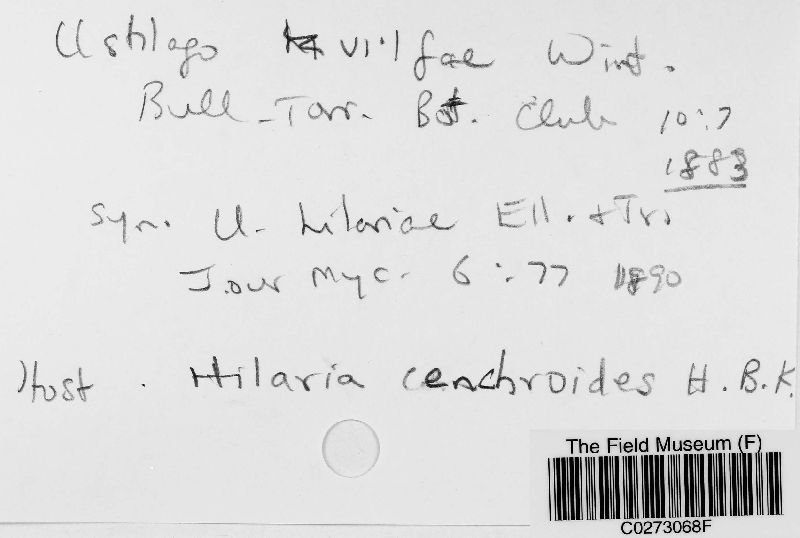 Ustilago vilfae Wint.
Bull. Torr. Bot. Club 10:7
1883
Syn. U. hilariae Ell. + Tr.
Jour Myc. 6:77 1890
Host. Hilaria cenchroides H.B.K.
The Field Museum (F)
C0273068F